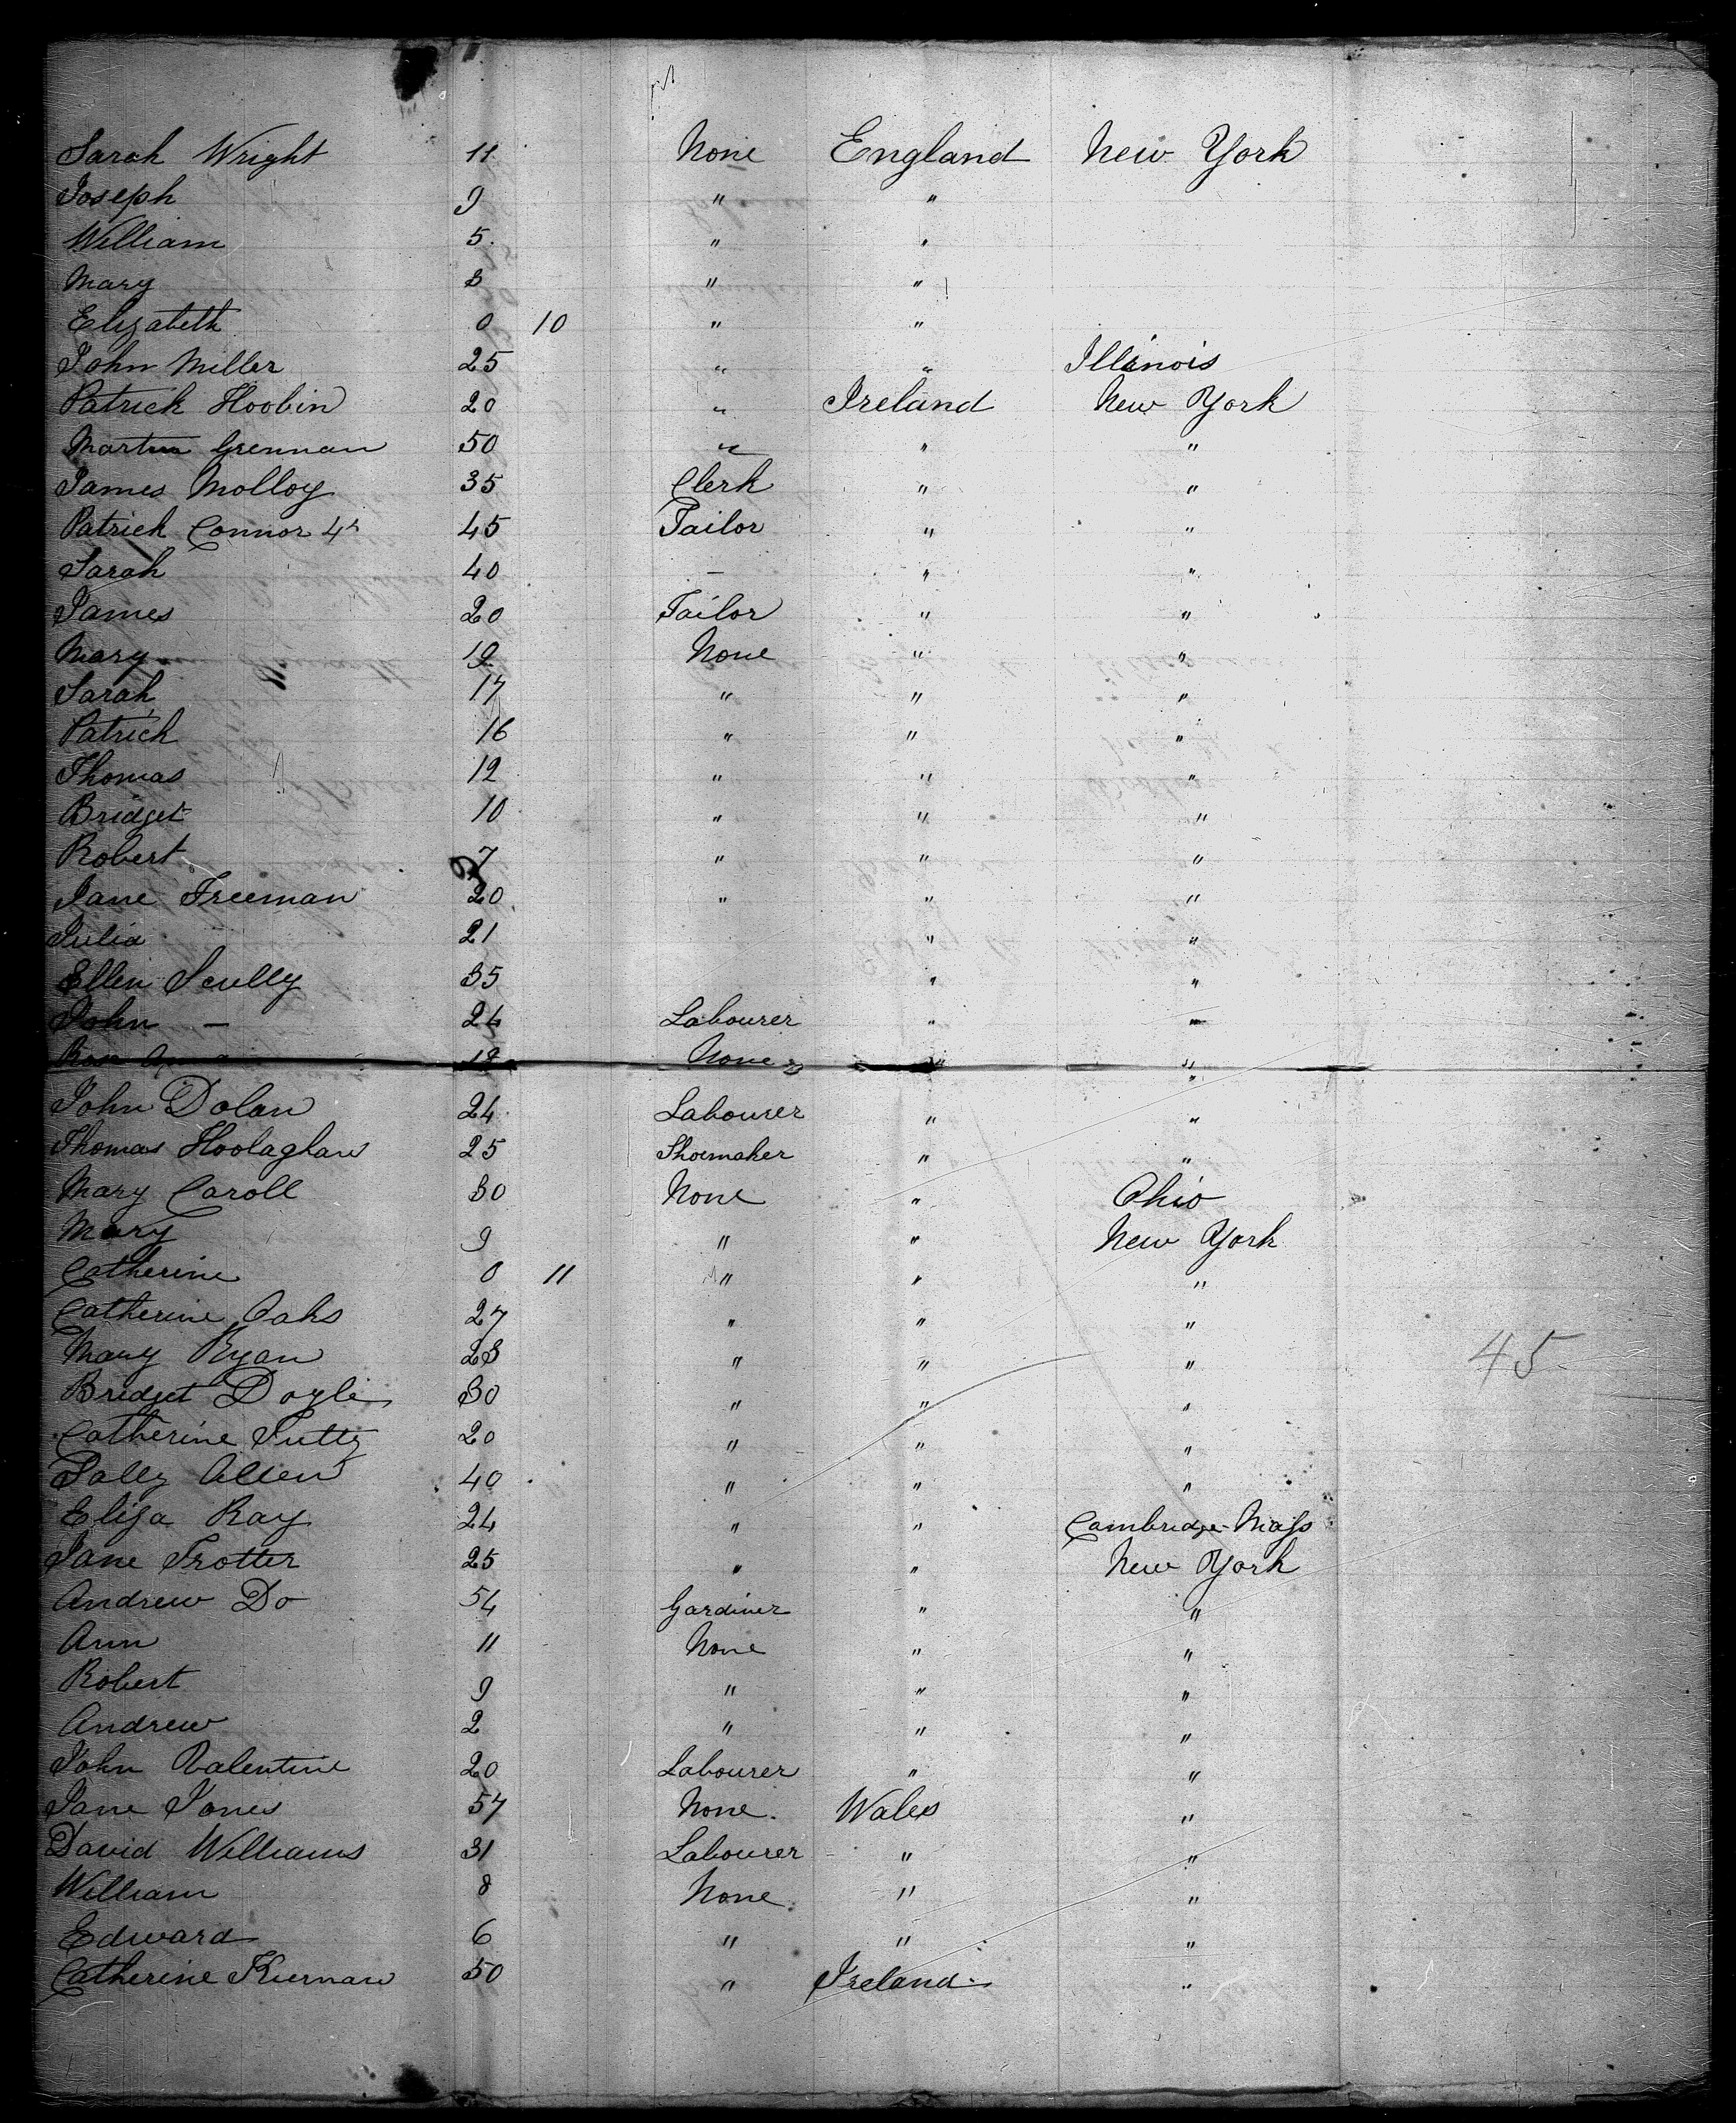 Sarah Wright 11 None England New York
Joseph 9 " "
William 5 " "
Mary 3 " "
Elizabeth 0 10 " "
John Miller 25 " " Illinois
Patrick Hoobin 20 " Ireland New York
Martin Grennan 50 " " "
James Molloy 35 Clerk " "
Patrick Connor 45 Tailor " "
Sarah 40 – " "
James 20 Tailor " "
Mary 19 None " "
Sarah 17 " " "
Patrick 16 " " "
Thomas 12 " " "
Bridget 10 " " "
Robert 7 " " "
Jane Freeman 20 " " "
Julia 21 " "
Ellen Scully 35 " "
John – 24 Labourer " "
None " "
John Dolan 24 Labourer " "
Thomas Hoolaghan 25 Shoemaker " "
Mary Caroll 30 None " Ohio
Mary 9 " " New York
Catherine 0 11 " " "
Catherine Oaks 27 " " "
Mary Ryan 23 " " "
Bridget Doyle 30 " " "
Catherine Tutty 20 " " "
Sally Allen 40 " " "
Eliza Ray 24 " " Cambridge Mass
Jane Trotter 25 " " New York
Andrew Do 54 Gardiner " "
Ann 11 None " "
Robert 9 " " "
Andrew 2 " " "
John Valentine 20 Labourer " "
Jane Jones 57 None Wales "
David Williams 31 Labourer " "
William 8 None " "
Edward 6 " " "
Catherine Kiernan 50 " Ireland "
45